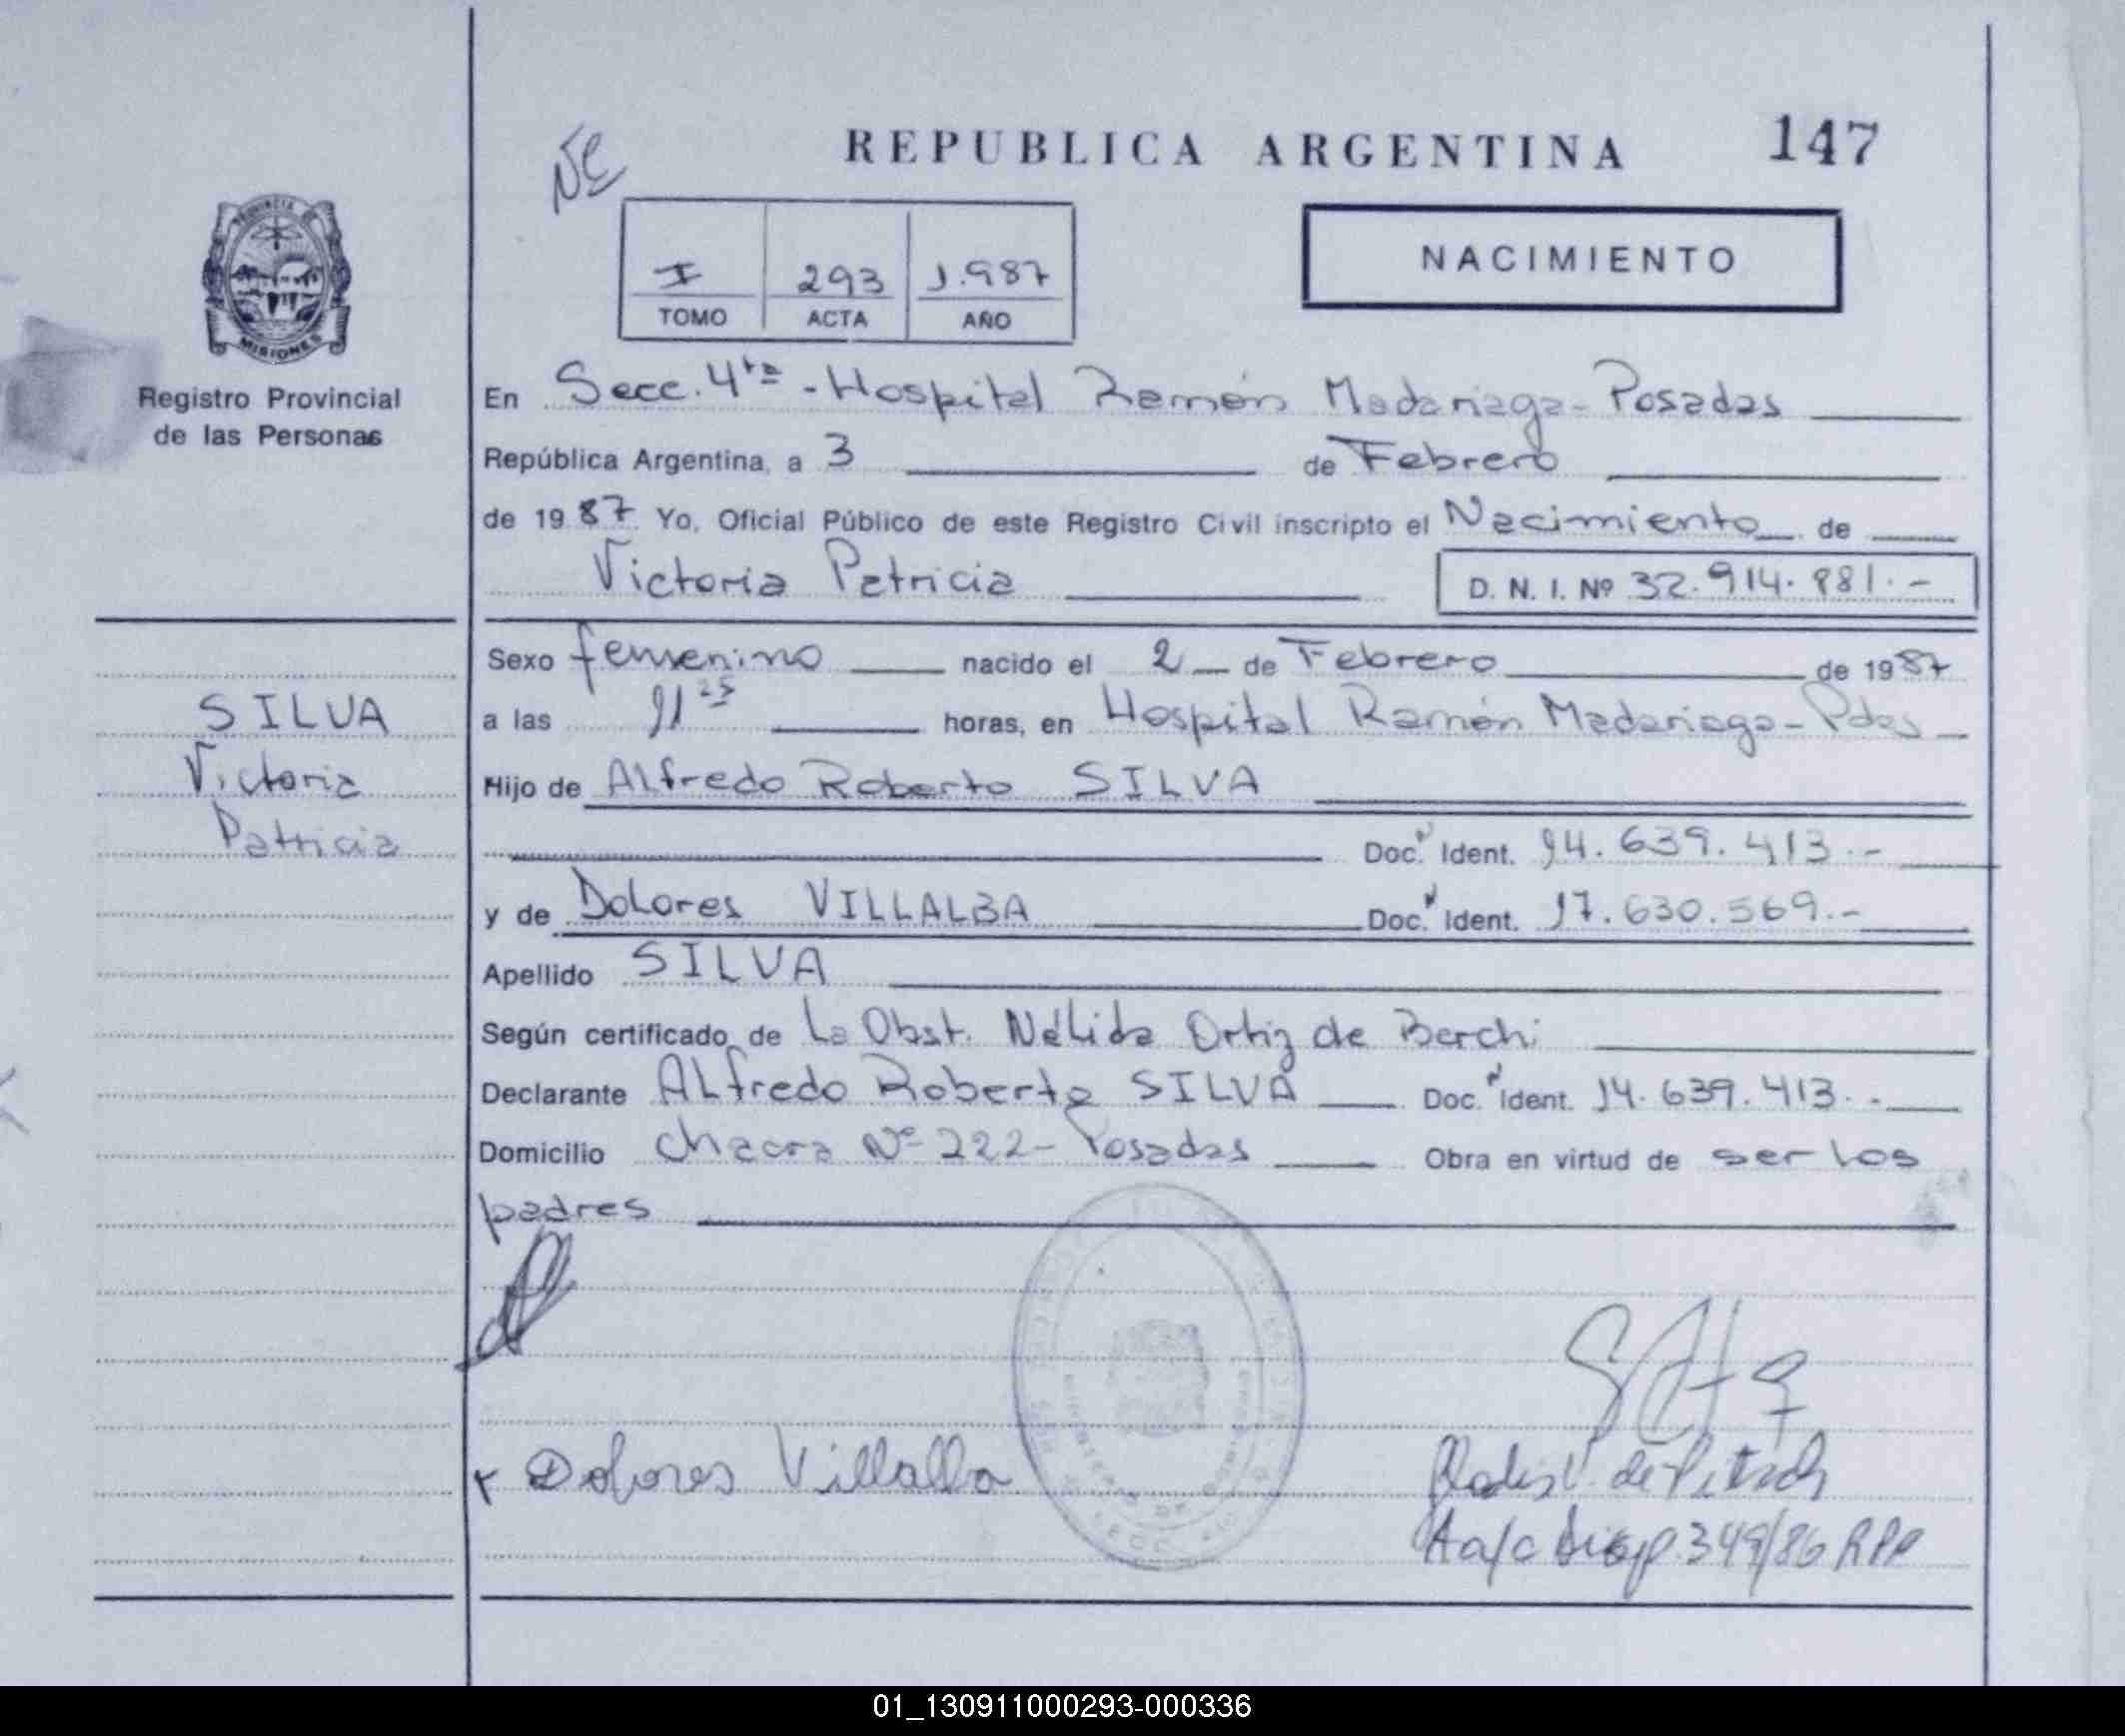 REPUBLICA ARGENTINA 147
NE
NACIMIENTO
I 293 1.987
TOMO ACTA AÑO
PROVINCIA DE
MISIONES
Registro Provincial
de las Personas
En Secc. 4ta - Hospital Ramón Madariaga - Posadas
República Argentina, a 3 de Febrero
de 1987 Yo, Oficial Público de este Registro Civil inscripto el Nacimiento de
Victoria Patricia D. N. I. Nº 32.914.881.-
Sexo femenino nacido el 2 de Febrero de 1987
a las 11 25 horas, en Hospital Ramón Madariaga - Pdas
Hijo de Alfredo Roberto SILVA
Doc. Ident. 14.639.413.-
y de Dolores VILLALBA Doc. Ident. 17.630.569.-
Apellido SILVA
Según certificado de La Obst. Nélida Ortiz de Berchi
Declarante Alfredo Roberto SILVA Doc. Ident. 14.639.413.-
Domicilio Chacra Nº 222 - Posadas Obra en virtud de ser los
padres
SILVA
Victoria
Patricia
Dolores Villalba
de
349/86 RPP
01_130911000293-000336